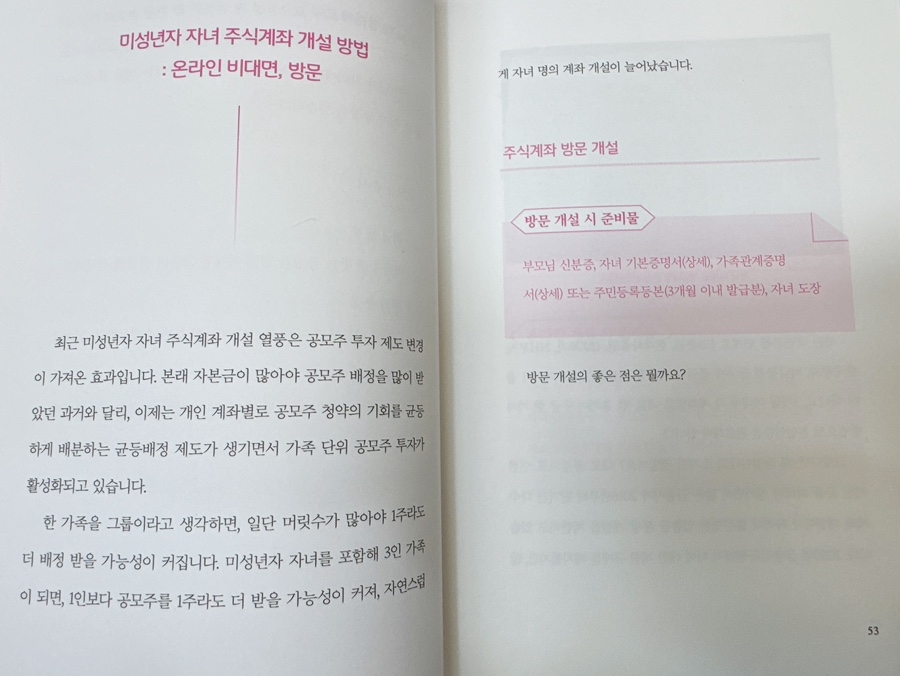 미성년자 자녀 주식계좌 개설 방법
: 온라인 비대면, 방문
최근 미성년자 자녀 주식계좌 개설 열풍은 공모주 투자 제도 변경
이 가져온 효과입니다. 본래 자본금이 많아야 공모주 배정을 많이 받
았던 과거와 달리, 이제는 개인 계좌별로 공모주 청약의 기회를 균등
하게 배분하는 균등배정 제도가 생기면서 가족 단위 공모주 투자가
활성화되고 있습니다.
한 가족을 그룹이라고 생각하면, 일단 머릿수가 많아야 1주라도
더 배정 받을 가능성이 커집니다. 미성년자 자녀를 포함해 3인 가족
이 되면, 1인보다 공모주를 1주라도 더 받을 가능성이 커져, 자연스럽
게 자녀 명의 계좌 개설이 늘어났습니다.
주식계좌 방문 개설
방문 개설 시 준비물
부모님 신분증, 자녀 기본증명서(상세), 가족관계증명
서(상세) 또는 주민등록등본(3개월 이내 발급분), 자녀 도장
방문 개설의 좋은 점은 뭘까요?
53